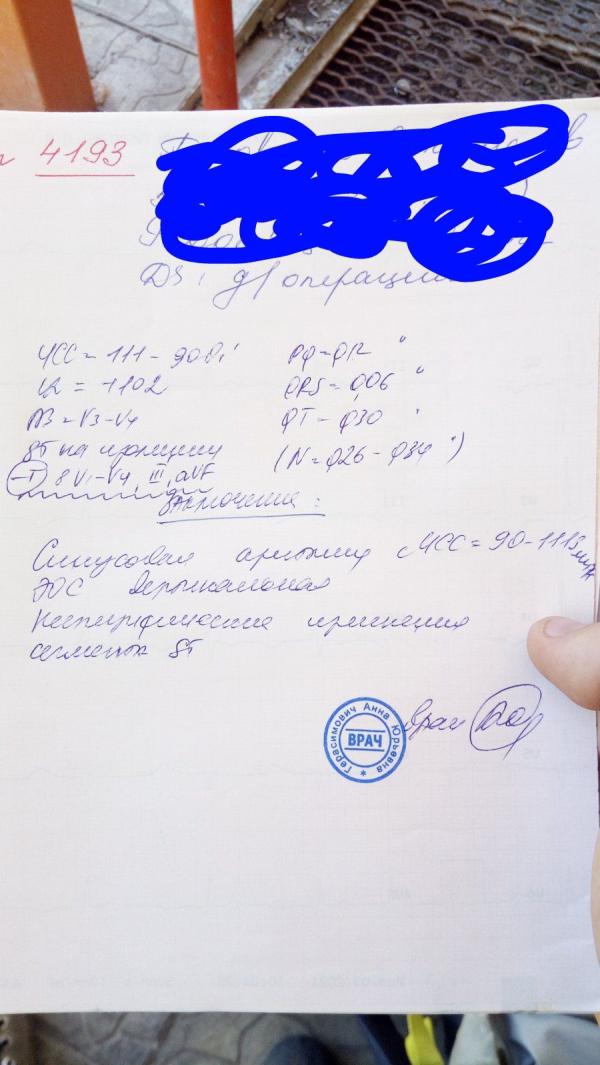 4193
Ds: д/операции
ЧСС = 111 - 90 в 1'
PQ = 0,12"
QRS = 0,06"
ПЗ = V3-V4
QT - 0,30"
ST на изолинии
(N = 0,26 - 0,34")
(-T) в V1-V4, III, aVF
Заключение:
Синусовая аритмия с ЧСС = 90-111 в мин
ЭОС вертикальная
Неспецифические изменения
сегмента ST
врач
Герасимович Анна Юрьевна
ВРАЧ